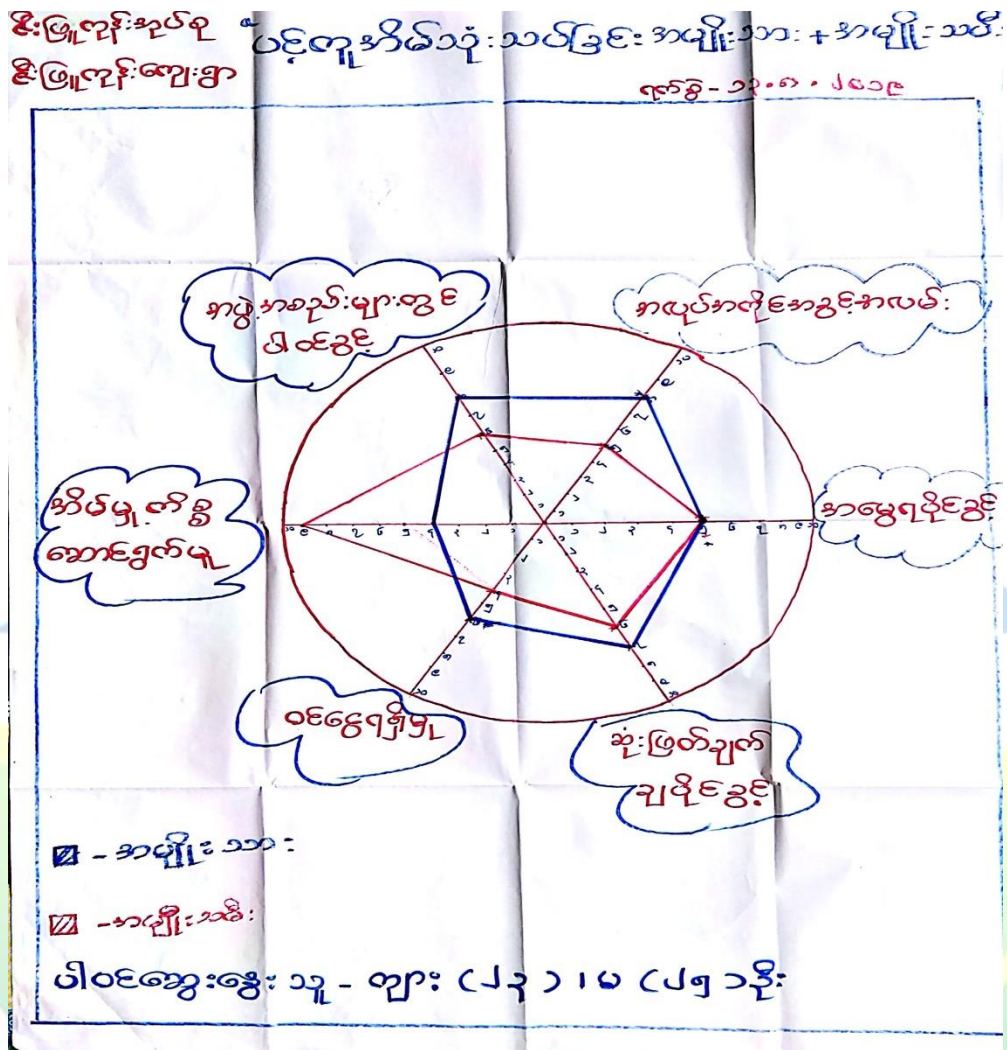 ဇီးဖြူကုန်းအုပ်စု
ဇီးဖြူကုန်းကျေးရွာ
"ပင့်ကူအိမ်သုံးသပ်ခြင်း အမျိုးသား + အမျိုးသမီး
ရက်စွဲ - ၁၃.၈.၂၀၁၉
အဖွဲ့အစည်းများတွင်
ပါဝင်ခွင့်
အလုပ်အကိုင်အခွင့်အလမ်း
အိမ်မှုကိစ္စ
ဆောင်ရွက်မှု
အမွေရပိုင်ခွင့်
ဝင်ငွေရရှိမှု
ဆုံးဖြတ်ချက်
ချပိုင်ခွင့်
- အမျိုးသား
- အမျိုးသမီး
ပါဝင်ဆွေးနွေးသူ - ကျား (၂၃) ၊ မ (၂၅) ဦး